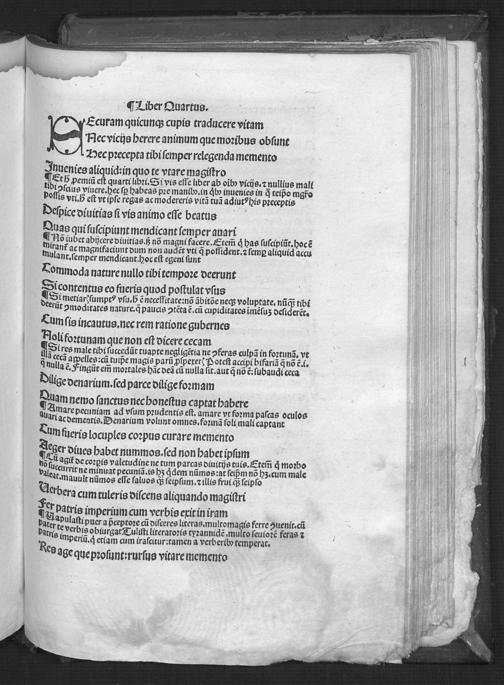 ¶Liber Quartus.
SEcuram quicunqꝫ cupis traducere vitam
Nec vicijs herere animum que moribus obsunt
Hec precepta tibi semper relegenda memento
Inuenies aliquid: in quo te vtare magistro
¶Et h̄ ꝓemiū est quarti libri. Si vis esse liber ab oībꝰ vicijs, ⁊ nullius mali
tibi ꝯscius viuere, hec fp habeas pre manibꝰ, in qbꝰ inuenies in q̄ teipō mgr̄o
possis vti. h̄ est vt ipse regas ac modereris vitā tuā adiutꝰ his preceptis
Despice diuitias si vis animo esse beatus
Quas qui suscipiunt mendicant semper auari
¶Nō iubet abijcere diuitias, sꝫ nō magni facere. Etem̄ q̄ has suscipiūt, hoc ē
mirant̄ ac magnifaciunt dum non audēt vti q̄ possident, ⁊ semꝑ aliquid accu
mulant, semper mendicant, hoc est egeni sunt
Commoda nature nullo tibi tempore deerunt
Si contentus eo fueris quod postulat vsus
¶Si metiarꝭ sumptꝰ vsu, h̄ ē necessitate: nō ābitiōe neqꝫ voluptate, nūqꝫ tibi
deerūt ꝯmoditates nature, q̄ paucis ꝯtēta ē, cū cupiditates imēsuꝫ desiderēt.
Cum sis incautus, nec rem ratione gubernes
Noli fortunam que non est dicere cecam
¶Si res male tibi succedūt tuapte negligētia ne ꝯferas culpā in fortunā, vt
illā cecā appelles: cū tuiꝑe magis parū ꝓspexerꝭ Potest accipi bifariā q̄ nō ē.i.
q̄ nulla ē. Fingūt em̄ mortales hāc deā cū nulla sit, aut q̄ nō ē: subaudi ceca
Dilige denarium, sed parce dilige formam
Quam nemo sanctus nec honestus captat habere
¶Amare pecuniam ad vsum prudentis est, amare vt forma pascas oculos
auari ac dementis. Denarium volunt omnes, formā soli mali captant
Cum fueris locuples corpus curare memento
Aeger diues habet nummos, sed non habet ipsum
¶Cū agit̄ de corpis valetudine ne tum parcas diuitijs tuis. Etem̄ q̄ morbo
nō succurrit ne minuat pecuniā, is hꝫ q̄dem nūmos: at seipm̄ nō hꝫ, cum male
valeat, mauult nūmos esse saluos qꝫ seipsum, ⁊ illis frui qꝫ seipso
Verbera cum tuleris discens aliquando magistri
Fer patris imperium cum verbis exit in iram
¶Vapulasti puer a p̄ceptore cū disceres literas, multomagis ferre ꝯuenit, cū
pater te verbis obiurgat. Tulisti literatoris tyrannidē, multo seuiorē feras ⁊
patris imperiū, q̄ etiam cum irascitur: tamen a verberibꝰ temperat.
Res age que prosunt: rursus vitare memento